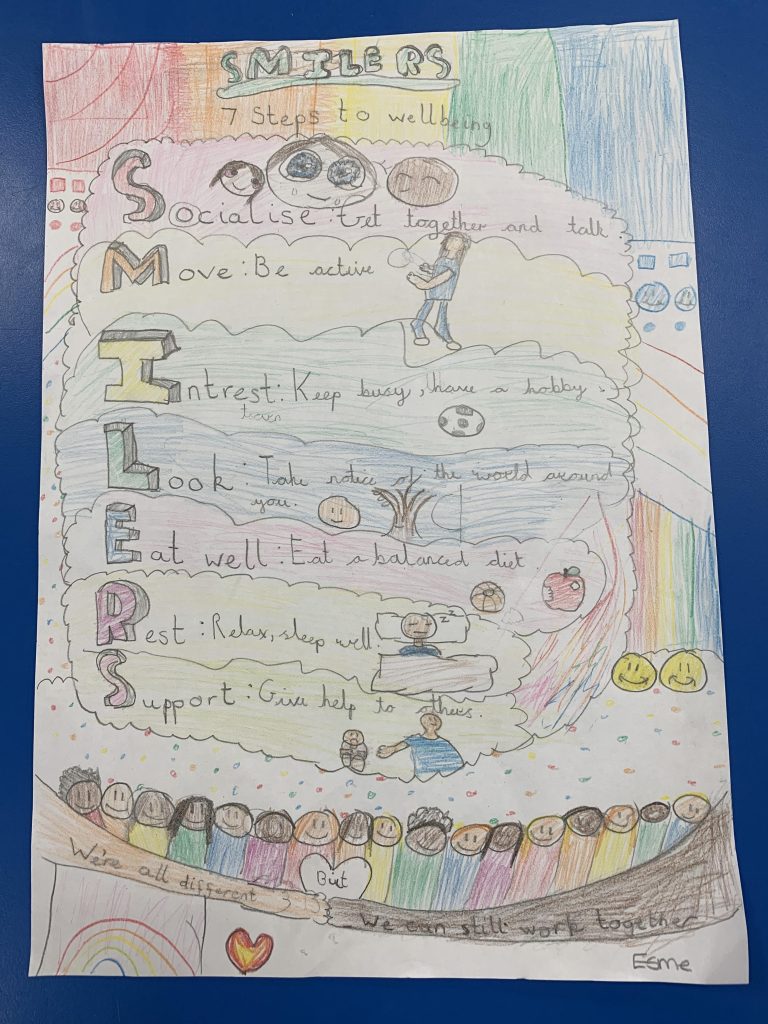 SMILERS
7 Steps to wellbeing
Socialise: Get together and talk
Move: Be active
Intrest: Keep busy, have a hobby.
learn
Look: Take notice of the world around
you.
Eat well: Eat a balanced diet.
Rest: Relax, sleep well.
zz
Support: Give help to others.
We're all different
But
We can still work together
Esme